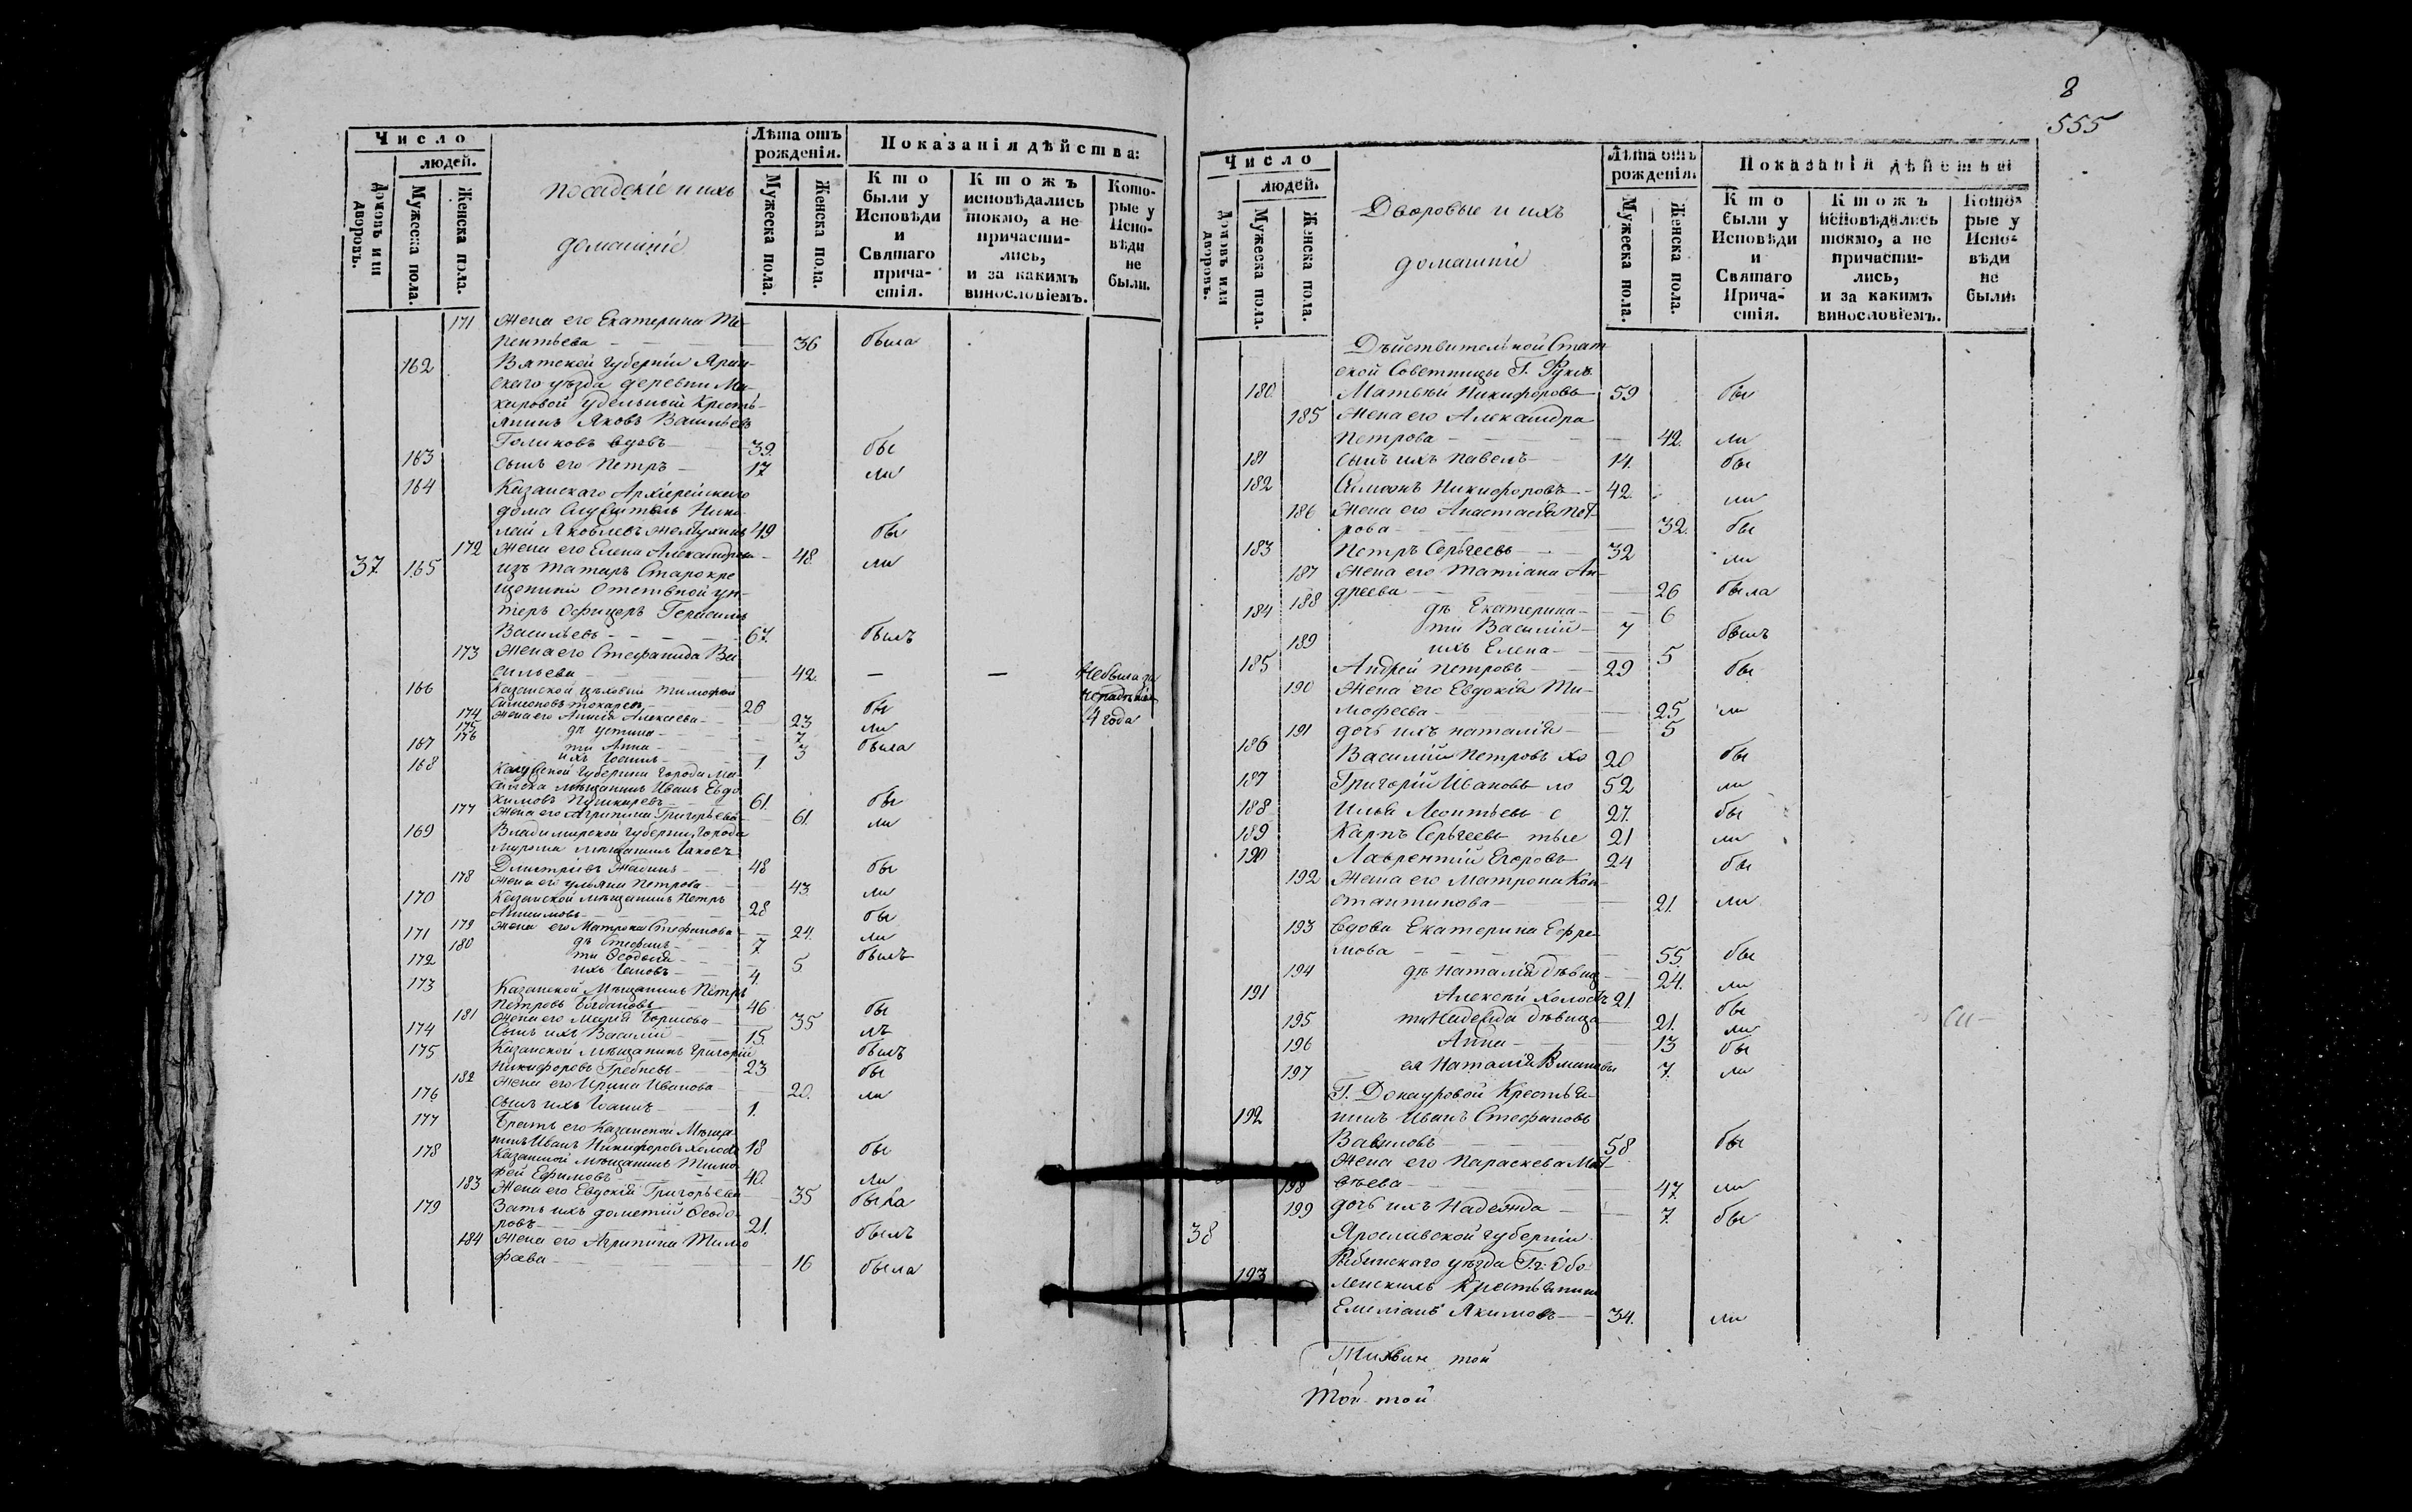 Число
людей.
Домовъ или дворовъ.
Мужеска пола.
Женска пола.
посадскіе и ихъ
домашніе
Лѣта отъ
рожденія.
Мужеска пола.
Женска пола.
Показанія дѣйства:
Кто
были у
Исповѣди
и
Святаго
прича-
стія.
Ктожъ
исповѣдались
токмо, а не
причасти-
лись,
и за какимъ
винословіемъ.
Кото-
рые у
Испо-
вѣди
не
были.
171 Жена его Екатерина Те-
рентьева 36 была
162 Вятской Губерніи Яран-
скаго уѣзда деревни Ма-
каровой удельный Кресть-
янинъ Яковъ Васильевъ
Голиковъ вдовъ 39. бы
163 Сынъ его Петръ 17 ли
164 Казанскаго Архіерейскаго
дома Служитель Нико-
лай Яковлевъ 49 бы
172 Жена его Елена Александрова 48. ли
37 165 изъ Татаръ Старокре
щеный Отставной ун-
теръ Офицеръ Герасимъ
Васильевъ 67. былъ
173 Жена его Стефанида Ва-
сильева 42. — — Небыла за
166 Казанской цѣховый Тимофей
Симеоновъ токаревъ 26 бы
4 года
174 Жена его Анна Алексеева 23 ли
175 дѣ Устина 7
176 ти Анна 3 была
167 ихъ Іоаннъ 1.
168 Калужской Губерніи Города Ма-
мѣщанинъ Иванъ Евдо
кимовъ Пушкаревъ 61. бы
177 Жена его Агрипина Григорьева 61. ли
169 Владимирской Губерніи Города
Мурома мѣщанинъ Іаковъ
Димитріевъ 48 бы
178 Жена его Ульяна Петрова 43. ли
170 Казанской мѣщанинъ Петръ
28 бы
179 Жена его Матрона Стефанова 24. ли
171 дѣ Стефанъ 7.
180 ти Ѳеодосія 5 былъ
172 ихъ Іаковъ 4.
173 Казанской Мѣщанинъ Петръ
Петровъ Богдановъ 46 бы
181 Жена его Марія Борисова 35 лъ
174 Сынъ ихъ Василій 15. былъ
175 Казанской Мѣщанинъ Григорій
Никифоровъ Гребневъ 23 бы
182 Жена его Ирина Иванова 20. ли
176 Сынъ ихъ Іоаннъ 1.
177 Братъ его Казанской Мѣща
нинъ Иванъ Никифоровъ холостъ 18 бы
178 Казанской мѣщанинъ Тимо
фей Ефимовъ 40. ли
183 Жена его Евдокія Григорьева 35 была
179 Зять ихъ Дометій Ѳеодо-
ровъ 21. былъ
184 Жена его Агрипина Тимо
феева 16 была
8
555
Число
людей.
Домовъ или дворовъ.
Мужеска пола.
Женска пола.
Дворовые и ихъ
домашніи
Лѣта отъ
рожденія.
Мужеска пола.
Женска пола.
Показанія дѣйства:
Кто
были у
Исповѣди
и
Святаго
Прича-
стія.
Ктожъ
исповѣдались
токмо, а не
причасти-
лись,
и за какимъ
винословіемъ.
Кото-
рые у
Испо-
вѣди
не
были.
Дѣйствительной Стат
ской Советницы Г.
180. Матвѣй Никифоровъ 59 бы
185 Жена его Александра
Петрова 42. ли
181 Сынъ ихъ Павелъ 14. бы
182 Симеонъ Никифоровъ 42 ли
186 Жена его Анастасія Пет-
рова 32. бы
183 Петръ Сергѣевъ 32 ли
187 Жена его Татіана Ан-
дреева 26 была
188 дѣ Екатерина 6
184 ти Василій 7 былъ
189 ихъ Елена 5
185 Андрей Петровъ 29 бы
190 Жена его Евдокія Ти-
мофеева 25 ли
191 дочь ихъ наталія 5
186 Василій Петровъ хо 20 бы
187 Григорій Ивановъ ло 52 ли
188 Илья Леонтьевъ с 27. бы
189 Карпъ Сергѣевъ тые 21 ли
190 Лаврентій Егоровъ 24 бы
192 Жена его Матрона Кон-
стантинова 21. ли
193 Вдова Екатерина Ефре-
мова 55. бы
194 дѣ Наталія дѣвица 24. ли
191 Алексѣй холостъ 21. бы
195 ти Надежда дѣвица 21. ли
196 Анна 13 бы
197 ея Наталія 7. ли
Г. Донауровой Крестья-
192 нинъ Иванъ Стефановъ
Вавиловъ 58 бы
Жена его Параскева Мат-
198 вѣева 47. ли
199 дочь ихъ Надежда 7. бы
38 Ярославской губерніи
Рыбинскаго уѣзда Г.г. Обо-
193 ленскихъ Крестьянинъ
Емиліанъ Якимовъ 34. ли
той
Той той